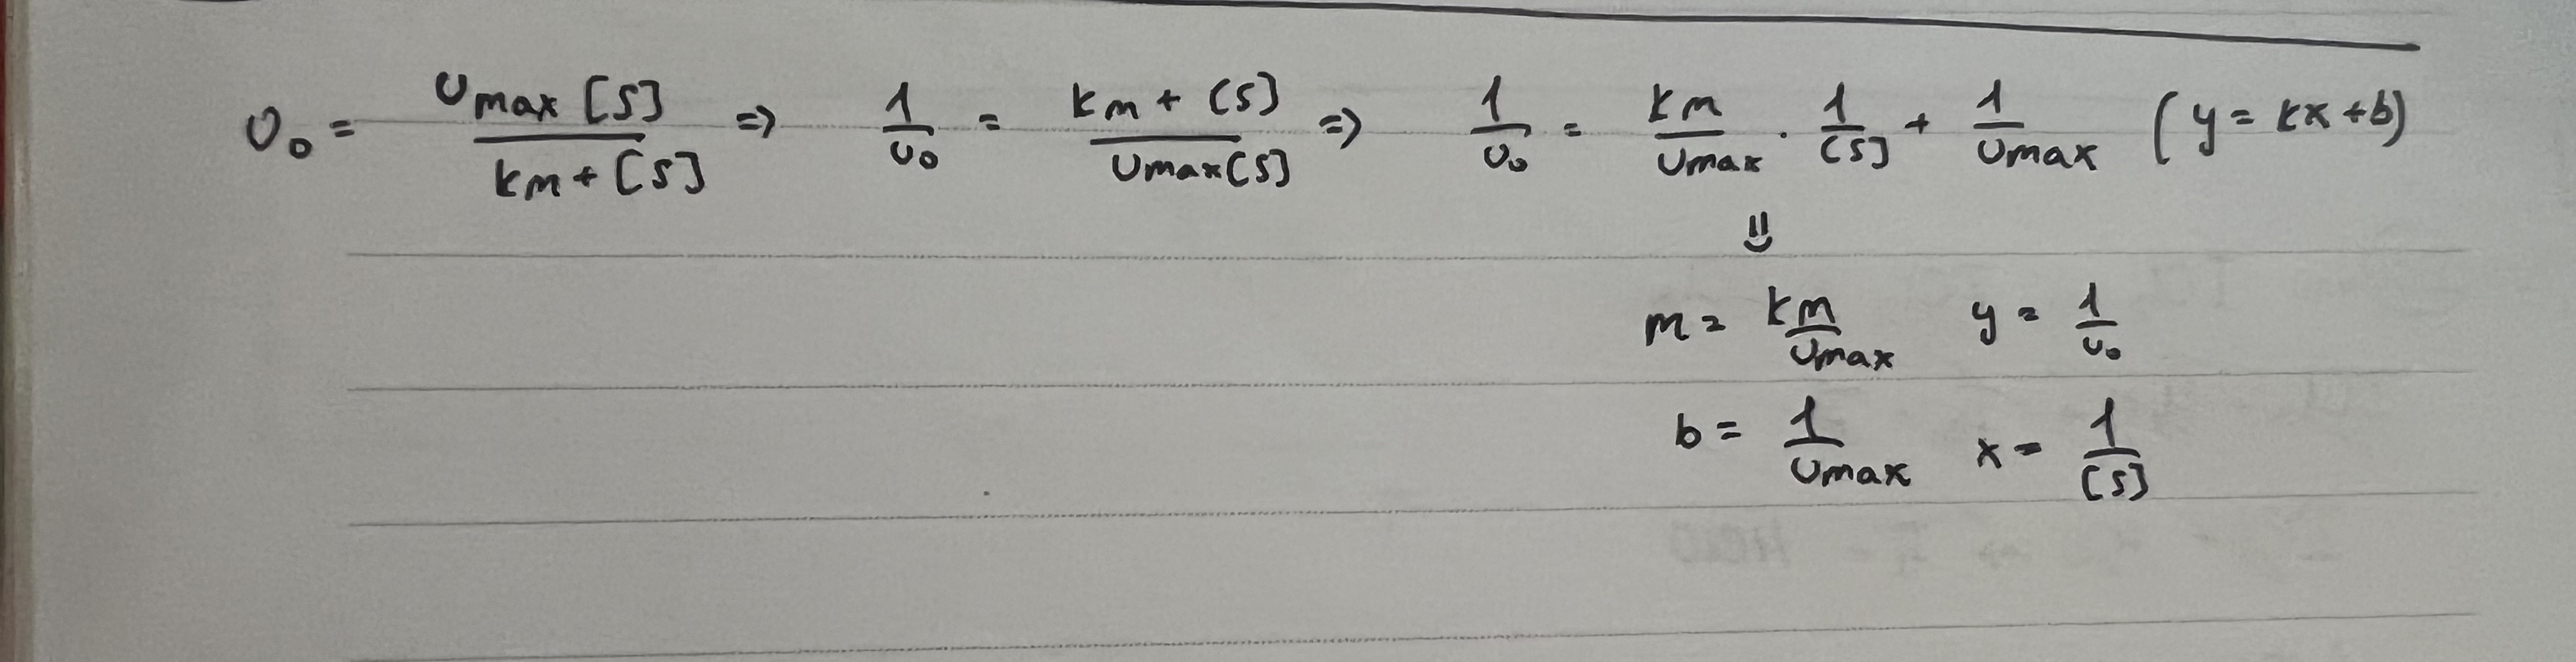 υ₀ = υmax [S] / km + [S] ⇒ 1/υ₀ = km + [S] / υmax[S] ⇒ 1/υ₀ = km/υmax · 1/[S] + 1/υmax (y = kx + b)
⇓
m = km/υmax y = 1/υ₀
b = 1/υmax x = 1/[S]